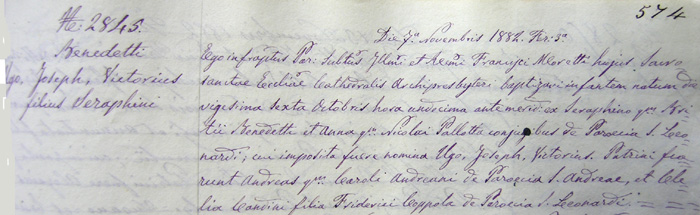 574
№: 2845.
Benedetti
Ugo, Joseph, Victorius
filius Seraphini
Die 7a Novembris 1882. Fer: 3a
Ego infraptus Par: Subtus Illmi et Rmi Francisci Moretti hujus Sacro
sanctae Eccliae Cathedralis Archipresbyteri baptizavi infantem natum die
vigesima sexta Octobris hora undecima antemerid: ex Seraphino qm
Benedetti et Anna qm Nicolai Pallotta conjugibus de Paroecia S. Leo-
nardi; cui imposita fuere nomina Ugo, Joseph, Victorius. Patrini fue
runt Andreas qm Caroli Andreani de Paroecia S. Andreae, et Cle
lia Condini filia Friderici Coppola de Paroecia S. Leonardi =